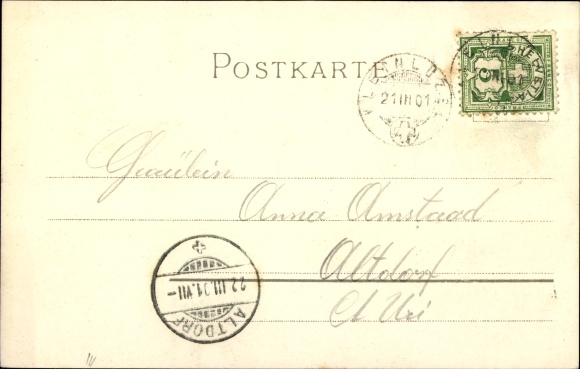 POSTKARTE
21 III 01
HELVETIA
5
Fräulein
Anna Amstaad
Altdorf
Ct Uri
22.III.01.VII-
ALTDORF